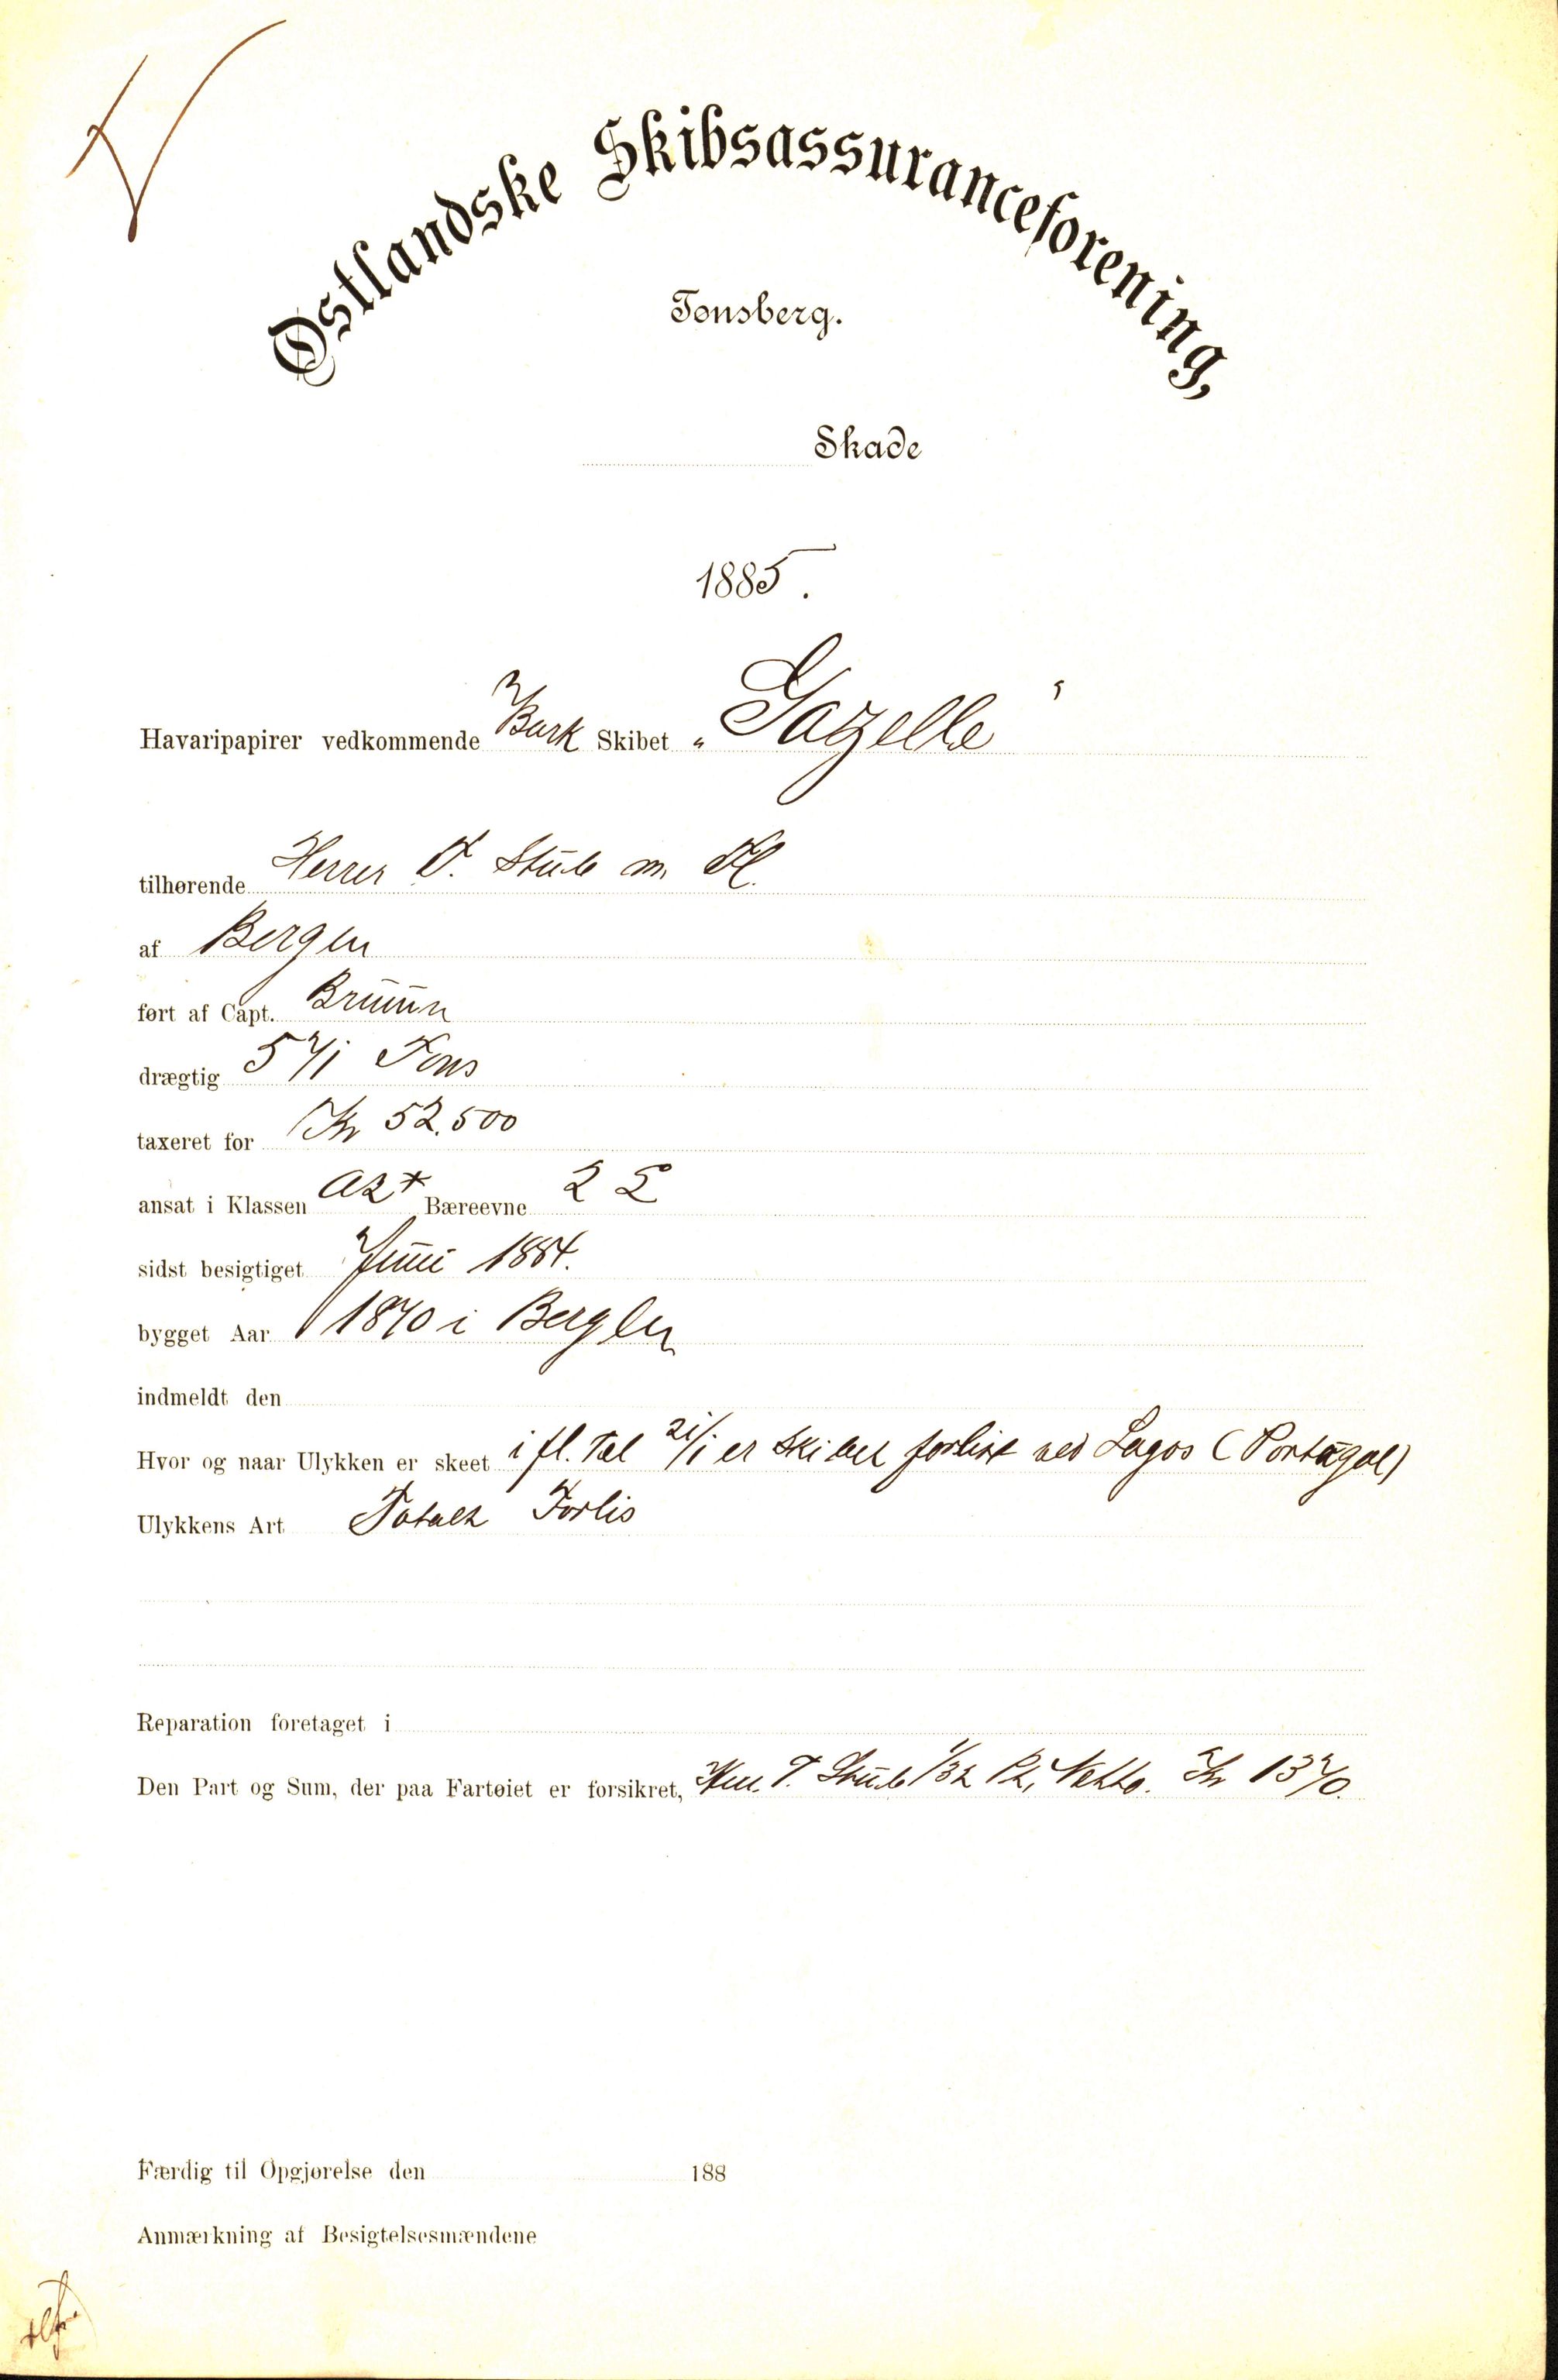 Østlandske Skibsassuranceforening,
Tønsberg.
Skade
1885.
Havaripapirer vedkommende Bark Skibet „Gazelle"
tilhørende Herrer T. Stub m. Fl.
af Bergen
ført af Capt. Bruun
drægtig 571 Tons
taxeret for Kr 52.500
ansat i Klassen A2* Bæreevne 2
sidst besigtiget Juni 1884.
bygget Aar 1870 i Bergen
indmeldt den
Hvor og naar Ulykken er skeet i fl. Tel 21/1 er Skibet forlist ved Lagos (Portugal)
Ulykkens Art Totalt Forlis
Reparation foretaget i
Den Part og Sum, der paa Fartøiet er forsikret, T. Stub 1/32 Pt, Netto. Kr 1370.
Færdig til Opgjørelse den 188
Anmærkning af Besigtelsesmændene